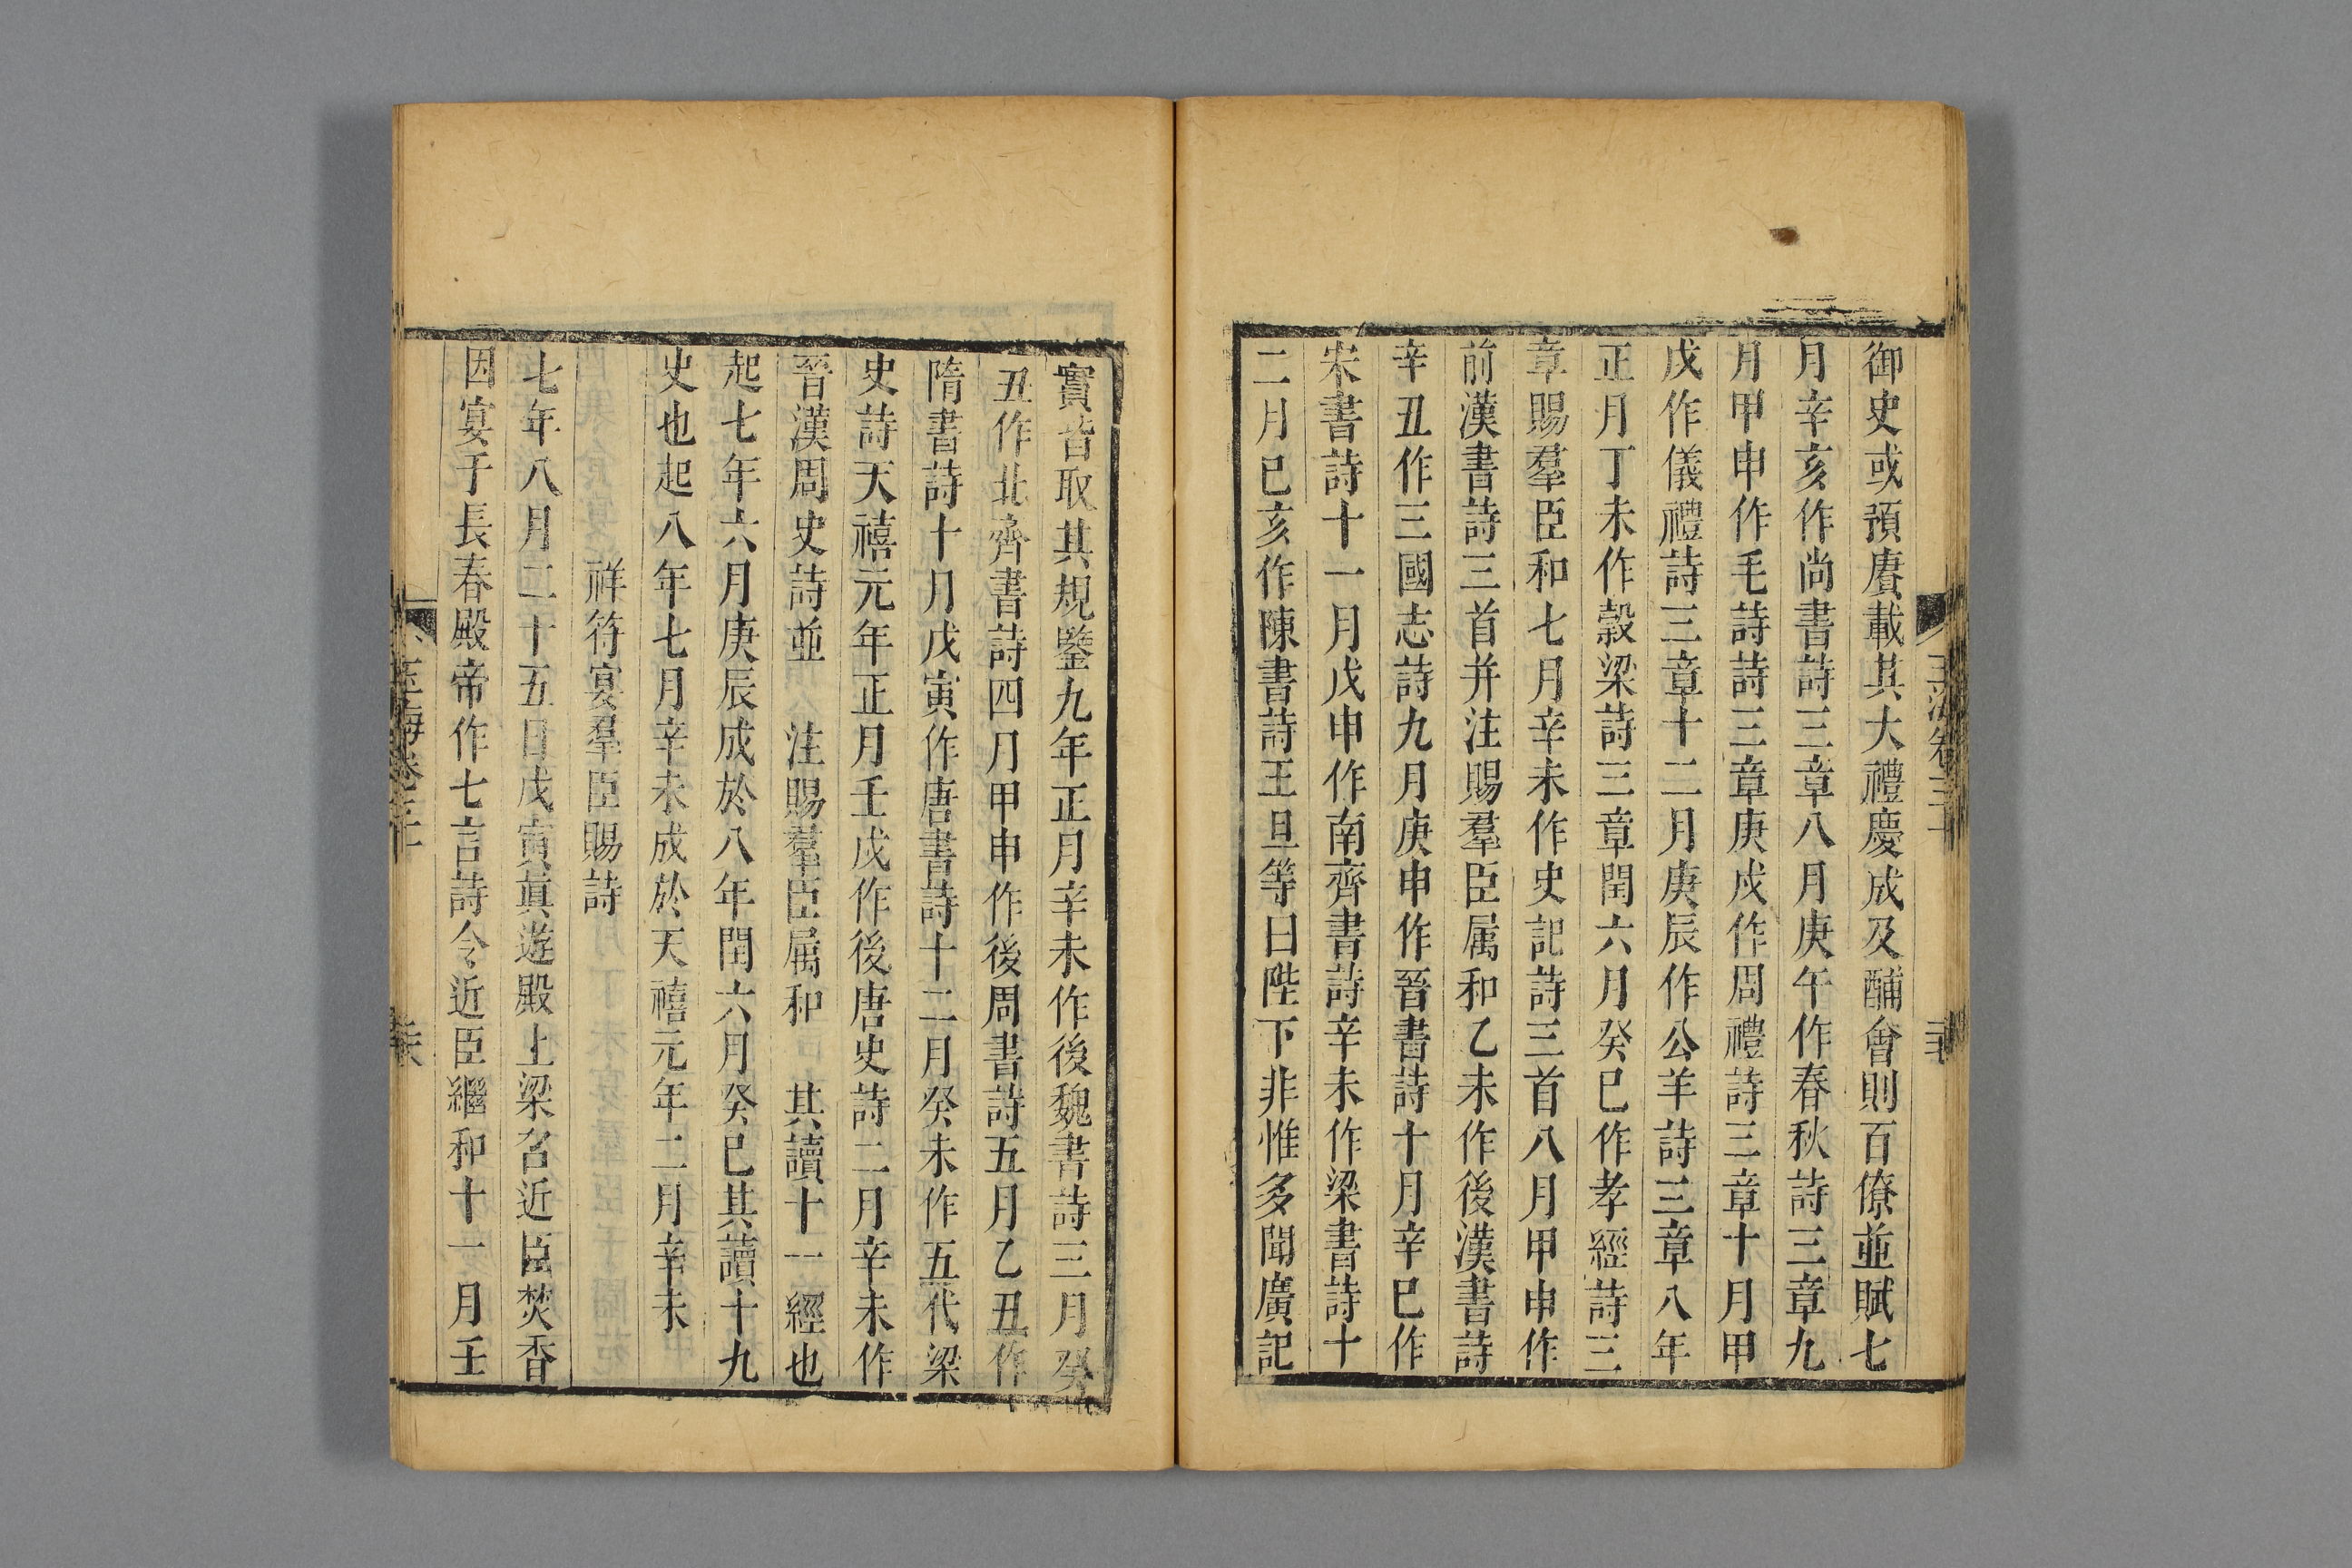 御史或預賡載其大禮慶成及酺會則百僚並賦七
月辛亥作尚書詩三章八月庚午作春秋詩三章九
月甲申作毛詩詩三章庚戌作周禮詩三章十月甲
戌作儀禮詩三章十二月庚辰作公羊詩三章八年
正月丁未作穀梁詩三章閏六月癸巳作孝經詩三
章賜羣臣和七月辛未作史記詩三首八月甲申作
前漢書詩三首并注賜羣臣属和乙未作後漢書詩
辛丑作三國志詩九月庚申作晉書詩十月辛巳作
宋書詩十一月戊申作南齊書詩辛未作梁書詩十
二月己亥作陳書詩王旦等曰陛下非惟多聞廣記
實皆取其規鑒九年正月辛未作後魏書詩三月癸
丑作北齊書詩四月甲申作後周書詩五月乙丑作
隋書詩十月戊寅作唐書詩十二月癸未作五代梁
史詩天禧元年正月壬戌作後唐史詩二月辛未作
晉漢周史詩並 注賜羣臣属和 其讀十一經也
起七年六月庚辰成於八年閏六月癸巳其讀十九
史也起八年七月辛未成於天禧元年二月辛未
祥符宴羣臣賜詩
七年八月二十五日戊寅真遊殿上梁召近臣焚香
因宴于長春殿帝作七言詩令近臣繼和十一月壬
玉海卷三十